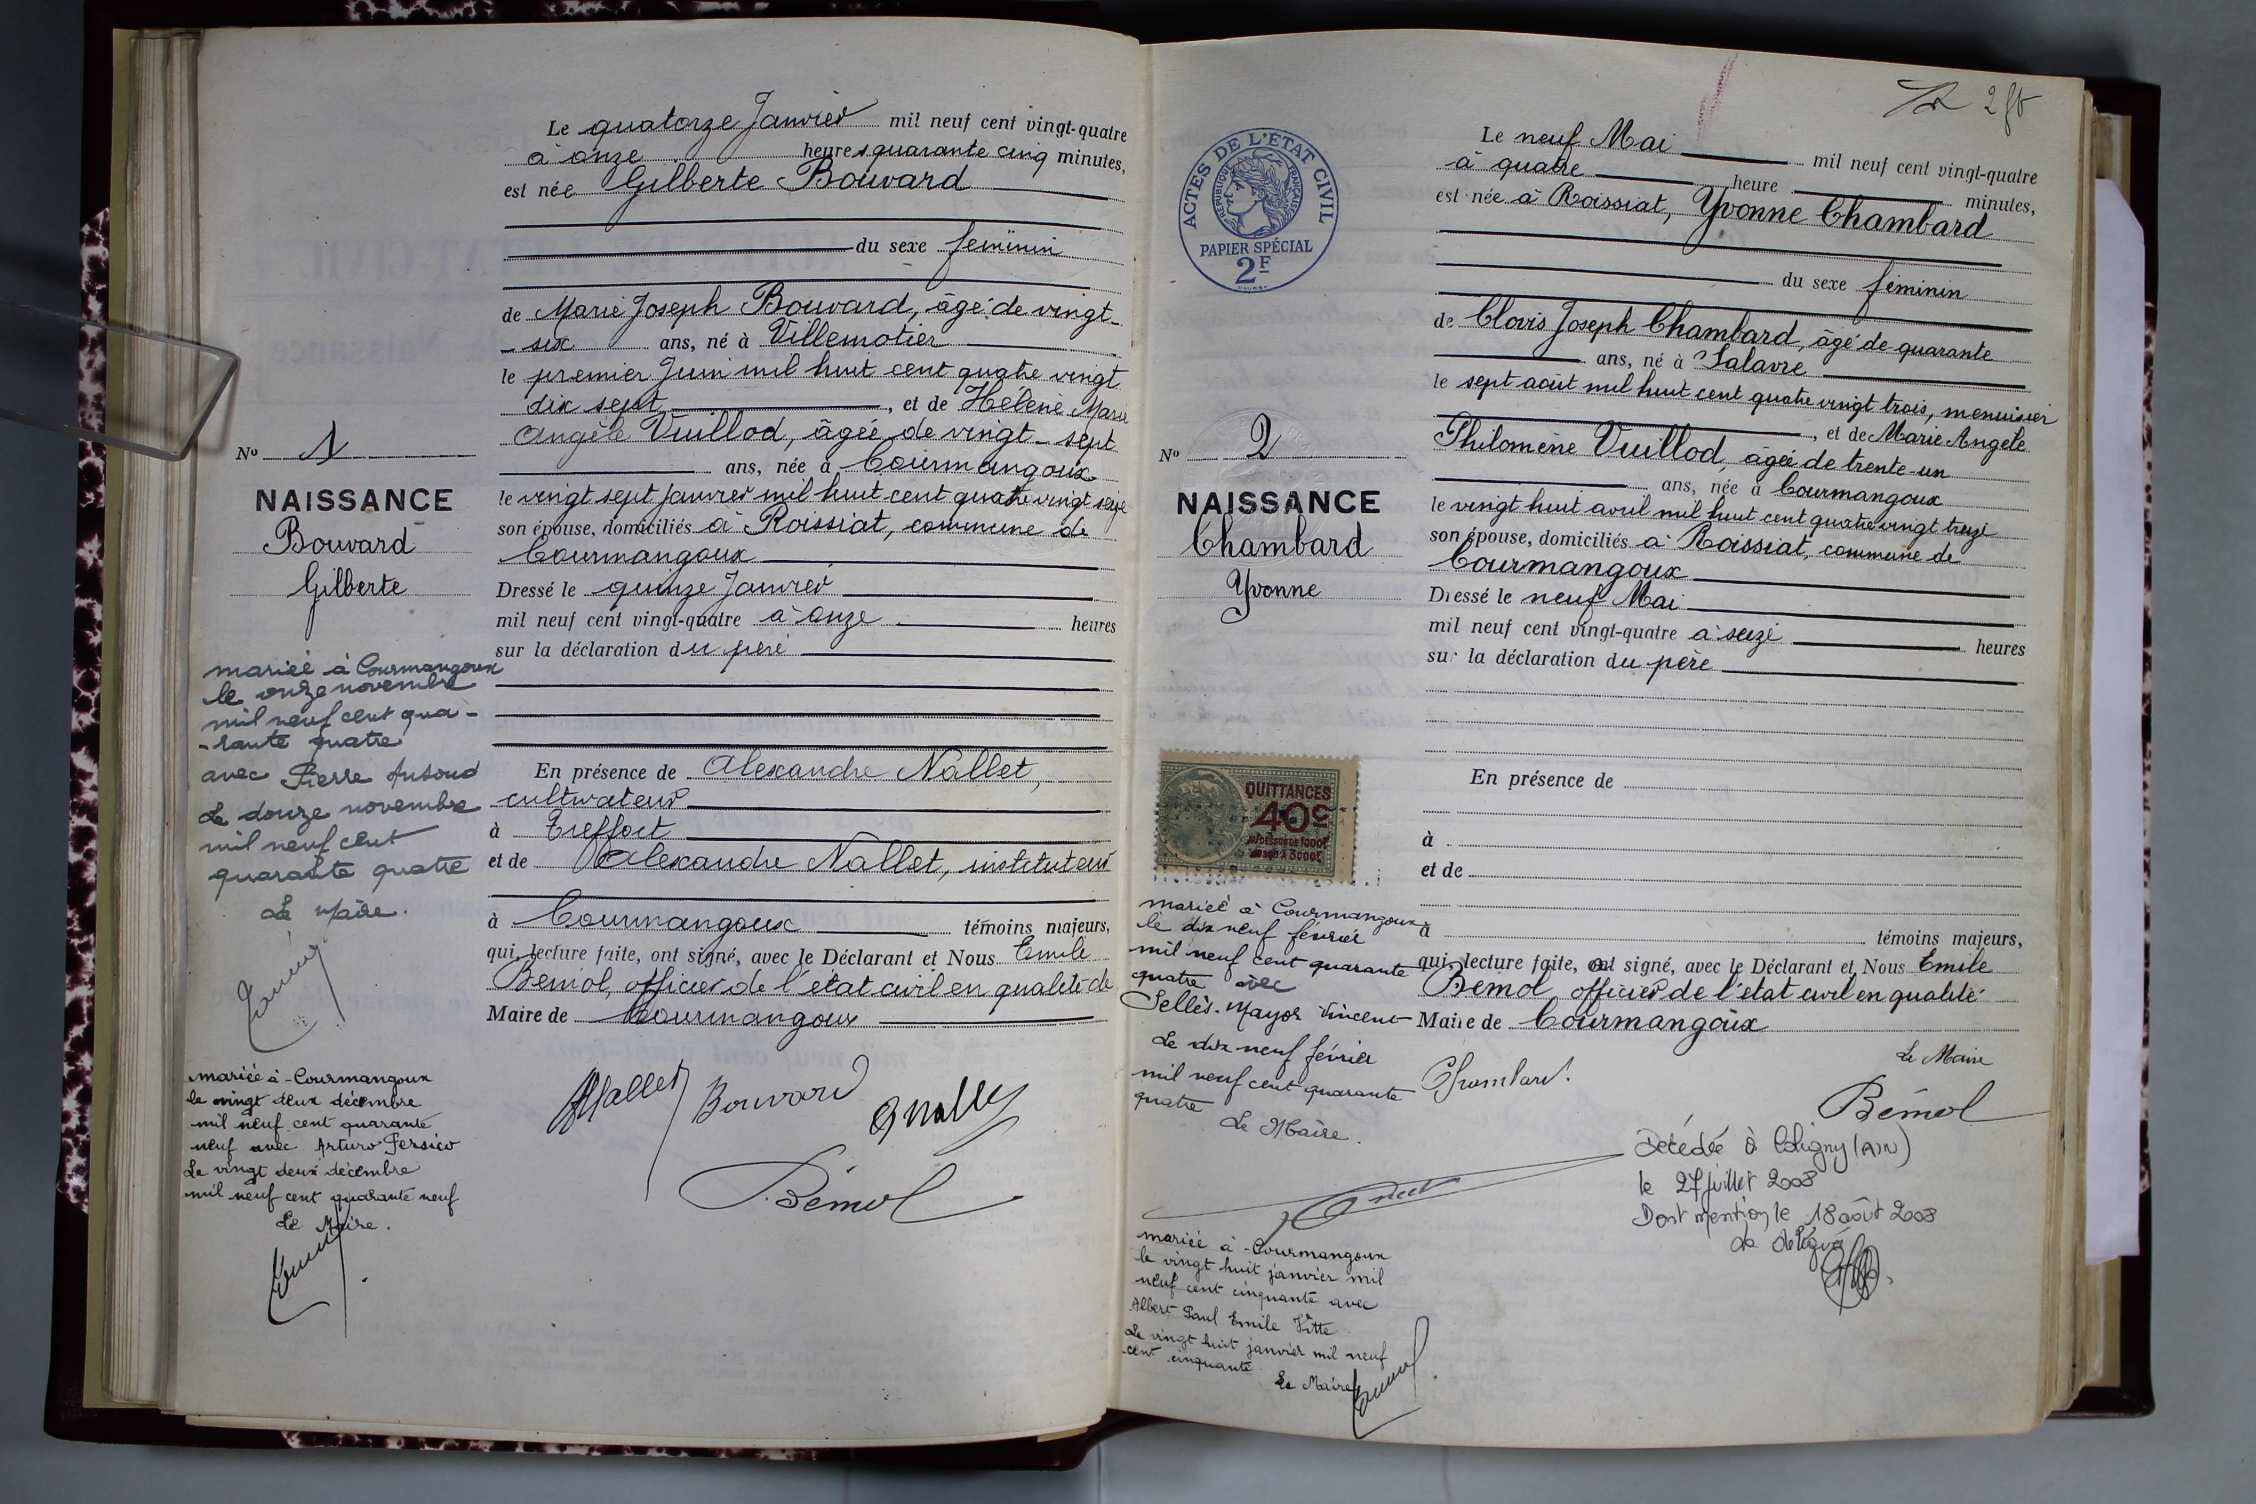 Le quatorze Janvier mil neuf cent vingt-quatre
à onze heures quarante cinq minutes,
est née Gilberte Bouvard
du sexe féminin
de Marie Joseph Bouvard, âgé de vingt-
six ans, né à Villemotier
le premier Juin mil huit cent quatre vingt
dix sept, et de Hélène Marie
Angèle Vuillod, âgée de vingt-sept
ans, née à Courmangoux
le vingt sept Janvier mil huit cent quatre vingt seize
son épouse, domiciliés à Roissiat, commune de
Courmangoux
Dressé le quinze Janvier
mil neuf cent vingt-quatre à onze heures
sur la déclaration du père
En présence de Alexandre Nallet,
cultivateur
à Treffort
et de Alexandre Nallet, instituteur
à Courmangoux témoins majeurs,
qui, lecture faite, ont signé, avec le Déclarant et Nous Emile
Bémol, officier de l'état civil en qualité de
Maire de Courmangoux
Nallet Bouvard Nallet
Bémol
No 1
NAISSANCE
Bouvard
Gilberte
mariée à Courmangoux
le onze novembre
mil neuf cent qua-
-rante quatre
avec Pierre
Le douze novembre
mil neuf cent
quarante quatre
Le Maire.
mariée à Courmangoux
le vingt deux décembre
mil neuf cent quarante
neuf avec Arturo Persico
Le vingt deux décembre
mil neuf cent quarante neuf
Le Maire.
ACTES DE L'ETAT CIVIL
REPUBLIQUE FRANÇAISE
PAPIER SPÉCIAL
2F
Le neuf Mai mil neuf cent vingt-quatre
à quatre heure minutes,
est née à Roissiat, Yvonne Chambard
du sexe féminin
de Clovis Joseph Chambard, âgé de quarante
ans, né à Salavre
le sept août mil huit cent quatre vingt trois, menuisier
, et de Marie Angèle
Philomène Vuillod, âgée de trente-un
ans, née à Courmangoux
le vingt huit avril mil huit cent quatre vingt treize
son épouse, domiciliés à Roissiat, commune de
Courmangoux
Dressé le neuf Mai
mil neuf cent vingt-quatre à seize heures
sur la déclaration du père
En présence de
à
et de
à témoins majeurs,
qui, lecture faite, ont signé, avec le Déclarant et Nous Emile
Bémol officier de l'état civil en qualité
Maire de Courmangoux
Le Maire
Chambard.
Bémol
Décédée à Coligny (AIN)
le 27 juillet 2008
Dont mention le 18 août 2008
No 2
NAISSANCE
Chambard
Yvonne
QUITTANCES
40c
mariée à Courmangoux
le dix neuf février
mil neuf cent quarante
quatre avec
Sellès-Mayor Vincent
Le dix neuf février
mil neuf cent quarante
quatre
Le Maire.
mariée à Courmangoux
le vingt huit janvier mil
neuf cent cinquante avec
Albert Paul Emile Vitte
Le vingt huit janvier mil neuf
cent cinquante
Le Maire